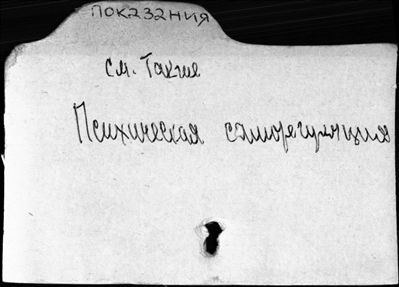 ПОКАЗАНИЯ
см. Также
Психическая саморегуляция